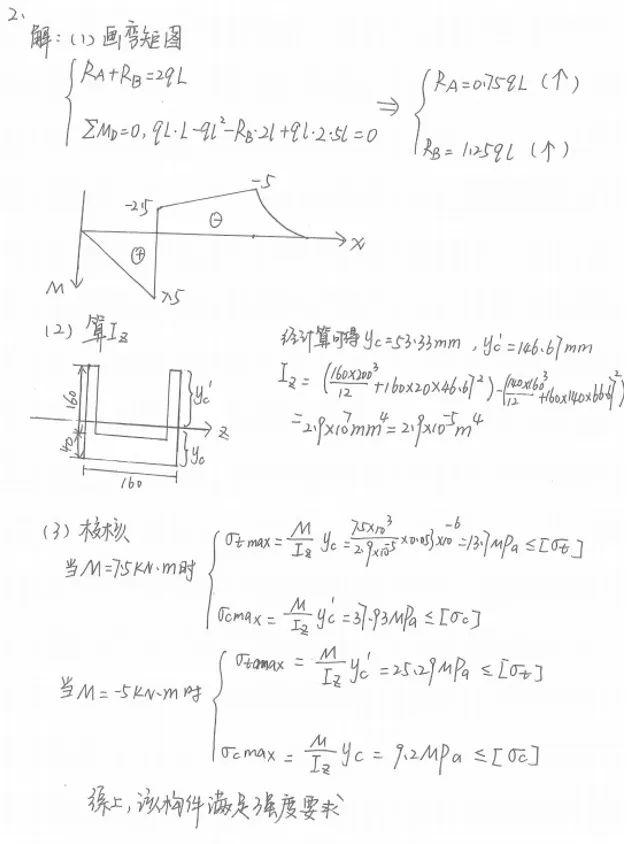 2、
解：(1) 画弯矩图
R_A+R_B=2qL
ΣM_D=0, qL·L-qL²-R_B·2L+qL·2.5L=0
⇒
R_A=0.75qL (↑)
R_B=1.25qL (↑)
-2.5
-5
⊖
⊕
x
M
7.5
(2) 算I_z
经计算可得 y_c=53.33mm , y_c'=146.67mm
I_z = (160×200³/12 + 160×20×46.67²) - (140×160³/12 + 160×140×66.67²)
=2.9×10⁷mm⁴=2.9×10⁻⁵m⁴
160
40
y_c'
z
y_c
160
(3) 校核
当M=7.5KN·m时
σ_t max = M/I_z y_c = 7.5×10³/2.9×10⁻⁵ ×0.053×10⁻⁶ =13.7MPa ≤[σ_t]
σ_c max = M/I_z y_c' =37.93MPa ≤[σ_c]
当M=-5KN·m时
σ_t max = M/I_z y_c' =25.29MPa ≤[σ_t]
σ_c max = M/I_z y_c = 9.2MPa ≤[σ_c]
综上，该构件满足强度要求